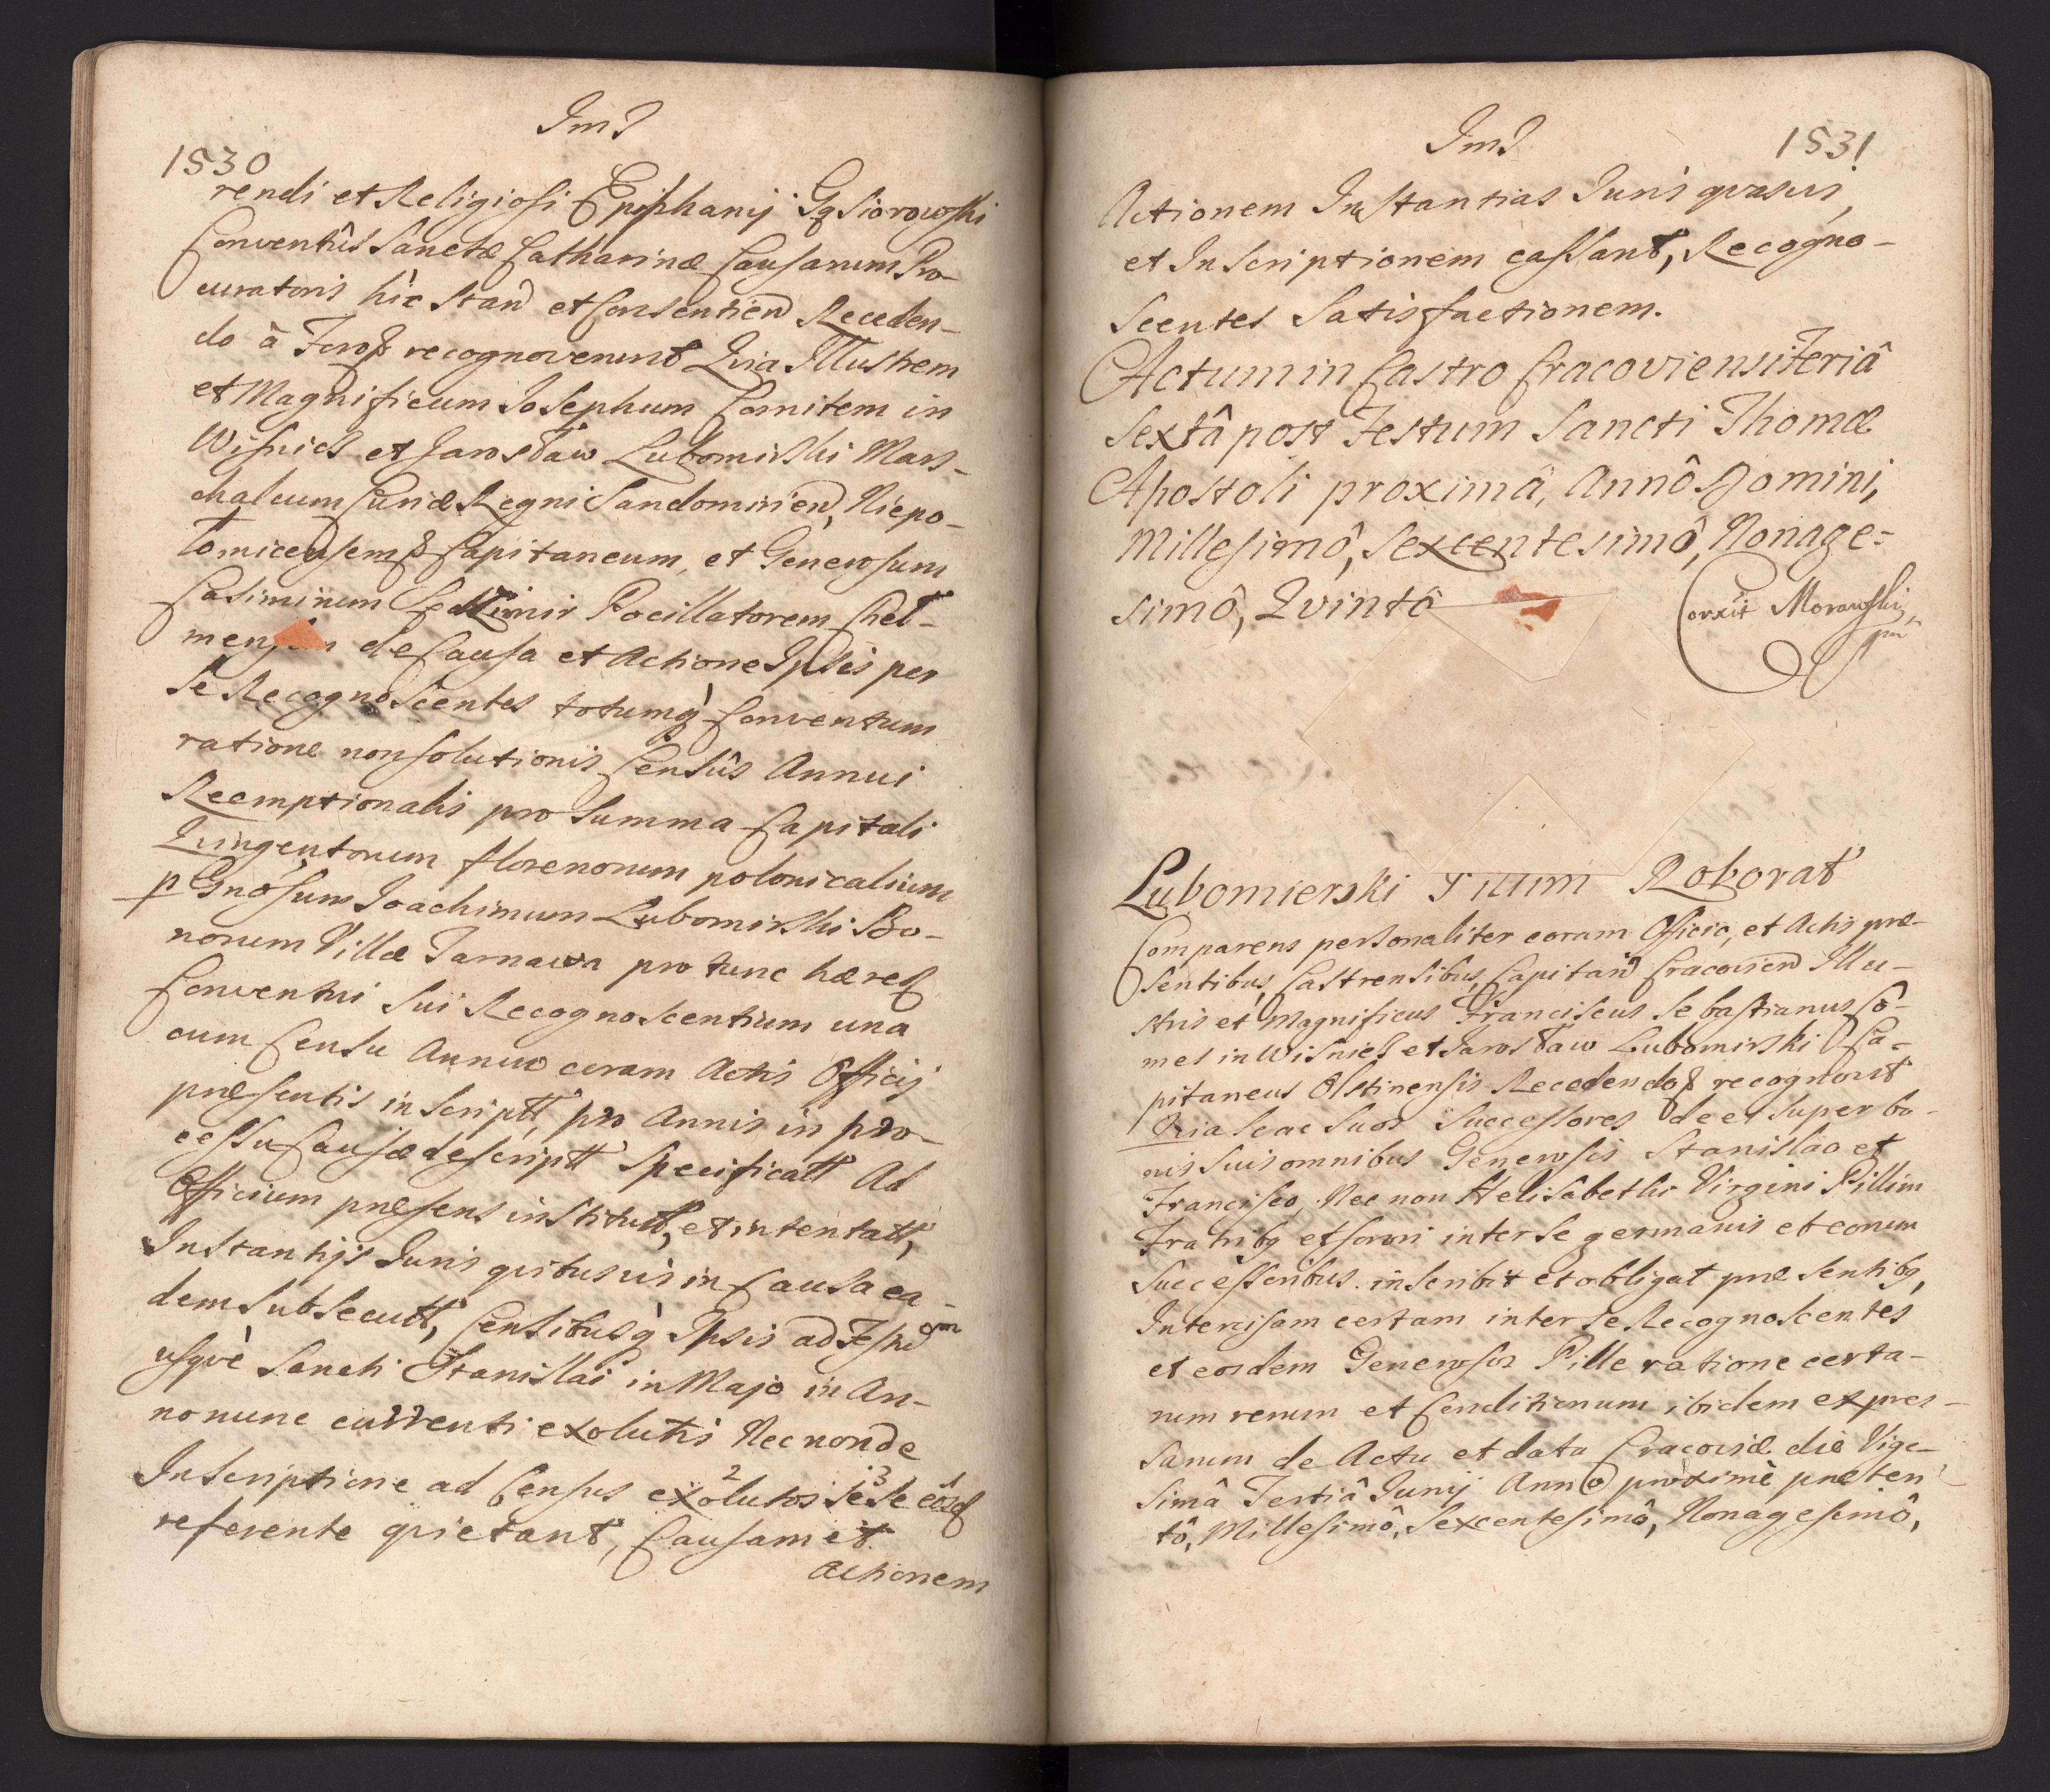 Im͠d
1530
rendi et Religiosi Epiphanij Gąsiorowski
Conventûs Sanctæ Catharinæ Causarum Pro-
curatoris hîc stan͠d et Consentien͠d Receden-
do à Foroꝶ recognoverunt Qvia Illustrem
et Magnificum Josephum Comitem in
Wisnicz et Jarosław Lubomirski Mars-
chalcum Curiæ Regni Sandomirien͠, Niepo-
łomicensemꝶ Capitaneum, et Generosum
Casimirum Pocillatorem Chel-
men de Causa et Actione Ipsis per
se Recognoscentes totumq̀ Conventum
ratione non solutionis Censûs Annui
Reemptionalis pro Summa Capitali
Qvingentorum florenorum polonicalium
p Gnosum Joachimum Lubomirski Bo-
norum Villæ Tarnawa pro tunc hæred
Conventui Sui Recognoscentium una
cum Censu Annuo coram Actis Officij
præsentis inscriptt, pro Annis in pro-
cessu Causæ descriptt Specificatt Ad
Officium præsens institutt, et intentatt,
Instantijs Juris qvibusvis in Causa ea-
dem subsecutt, Censibusq̀ Ipsis ad Festum
usqvè Sancti Stanislai in Majo in An-
no nunc currenti exolutis Nec non de
Inscriptione ad Census exolutos se se eosd
referente qvietant, Causam et
Actionem
Im͠d
1531
Actionem Instantias Juris qvasvis,
et Inscriptionem cassant, Recogno-
scentes Satisfactionem.
Actum in Castro Cracoviensi Feriâ
Sextâ post Festum Sancti Thomæ
Apostoli proximâ, Annô Domini,
Millesimô, Sexcentesimô, Nonage=
simô, Qvintô
Corxit Morawski
pm
Lubomierski Pillim Roborat
Comparens personaliter coram Officio, et Actis præ-
sentibus, Castrensibus, Capitan͠ Cracovien͠ Illu-
stris et Magnificus Franciscus Sebastianus Cô-
mes in Wisnicz et Jarosław Lubomirski Ca-
pitaneus Olstinensis Recedendoꝶ recognovit
Qvia se ac Suos Successores de et super bo-
nis Suis omnibus Generosis Stanislao et
Francisco, Nec non Helisabethi Virgini Pillim
Fratribꝫ et Sorori inter se germanis et eorum
Successoribus inscribit et obligat præsentibꝫ,
Intercisam certam inter se Recognoscentes
et eosdem Generosos Pille ratione certa-
rum rerum et Conditionum ibidem expres-
sarum de Actu et data Cracoviæ die Vige-
simâ Tertiâ Junij Annô proximè præten-
tô, Millesimô, Sexcentesimô, Nonagesimô,